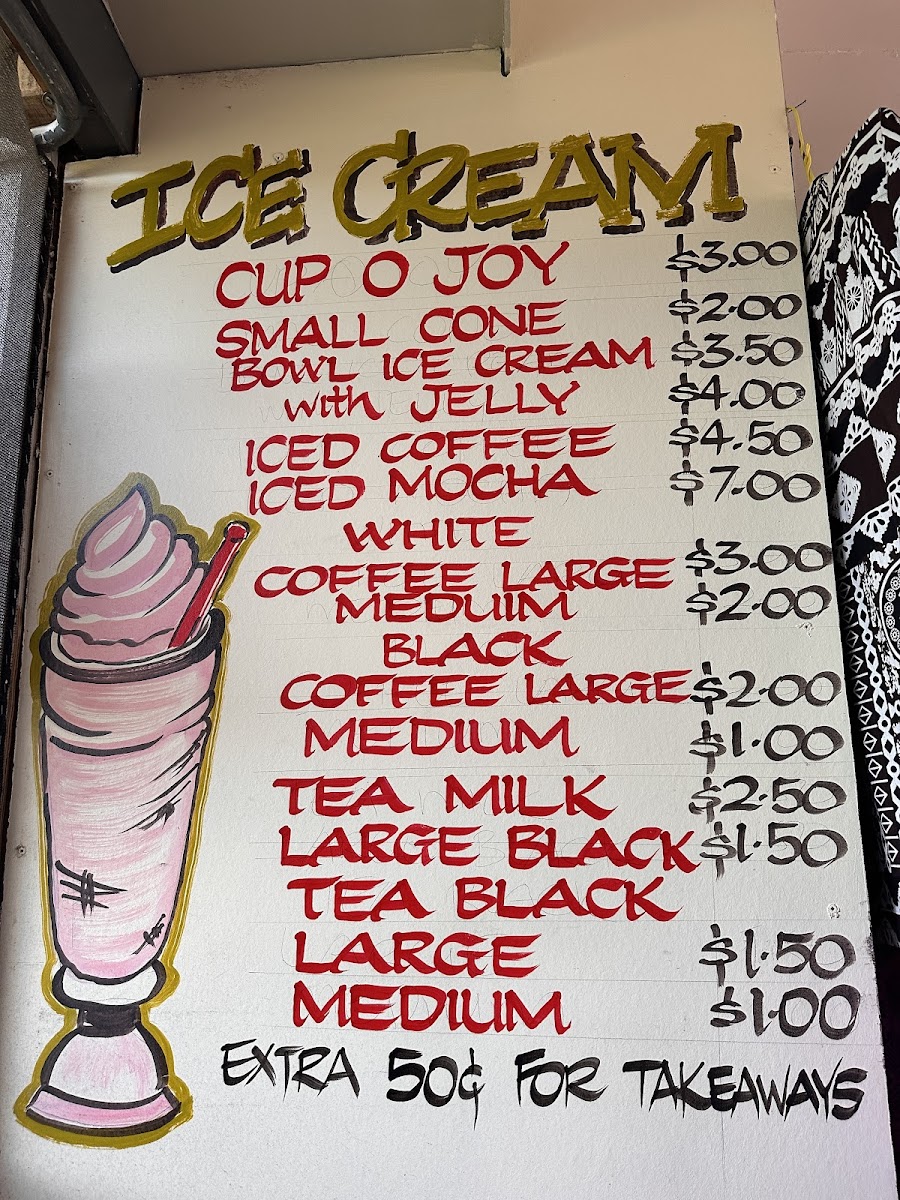 ICE CREAM
CUP O JOY $3.00
SMALL CONE $2.00
BOWL ICE CREAM $3.50
with JELLY $4.00
ICED COFFEE $4.50
ICED MOCHA $7.00
WHITE
COFFEE LARGE $3.00
MEDUIM $2.00
BLACK
COFFEE LARGE $2.00
MEDIUM $1.00
TEA MILK $2.50
LARGE BLACK $1.50
TEA BLACK
LARGE $1.50
MEDIUM $1.00
EXTRA 50¢ FOR TAKEAWAYS